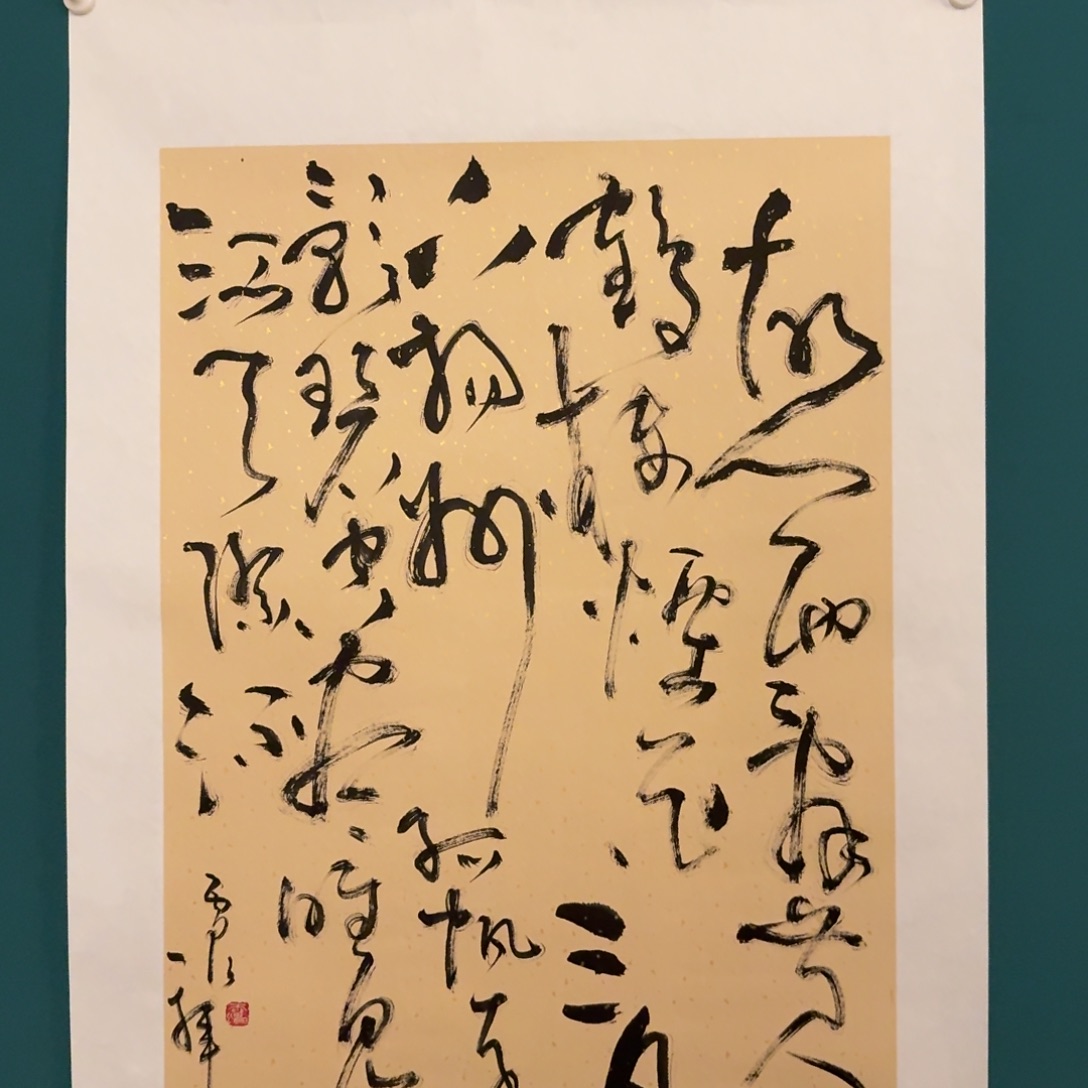 故人西辭黃
鶴樓煙花三月
下揚州孤帆遠
影碧空盡唯見
江天際流